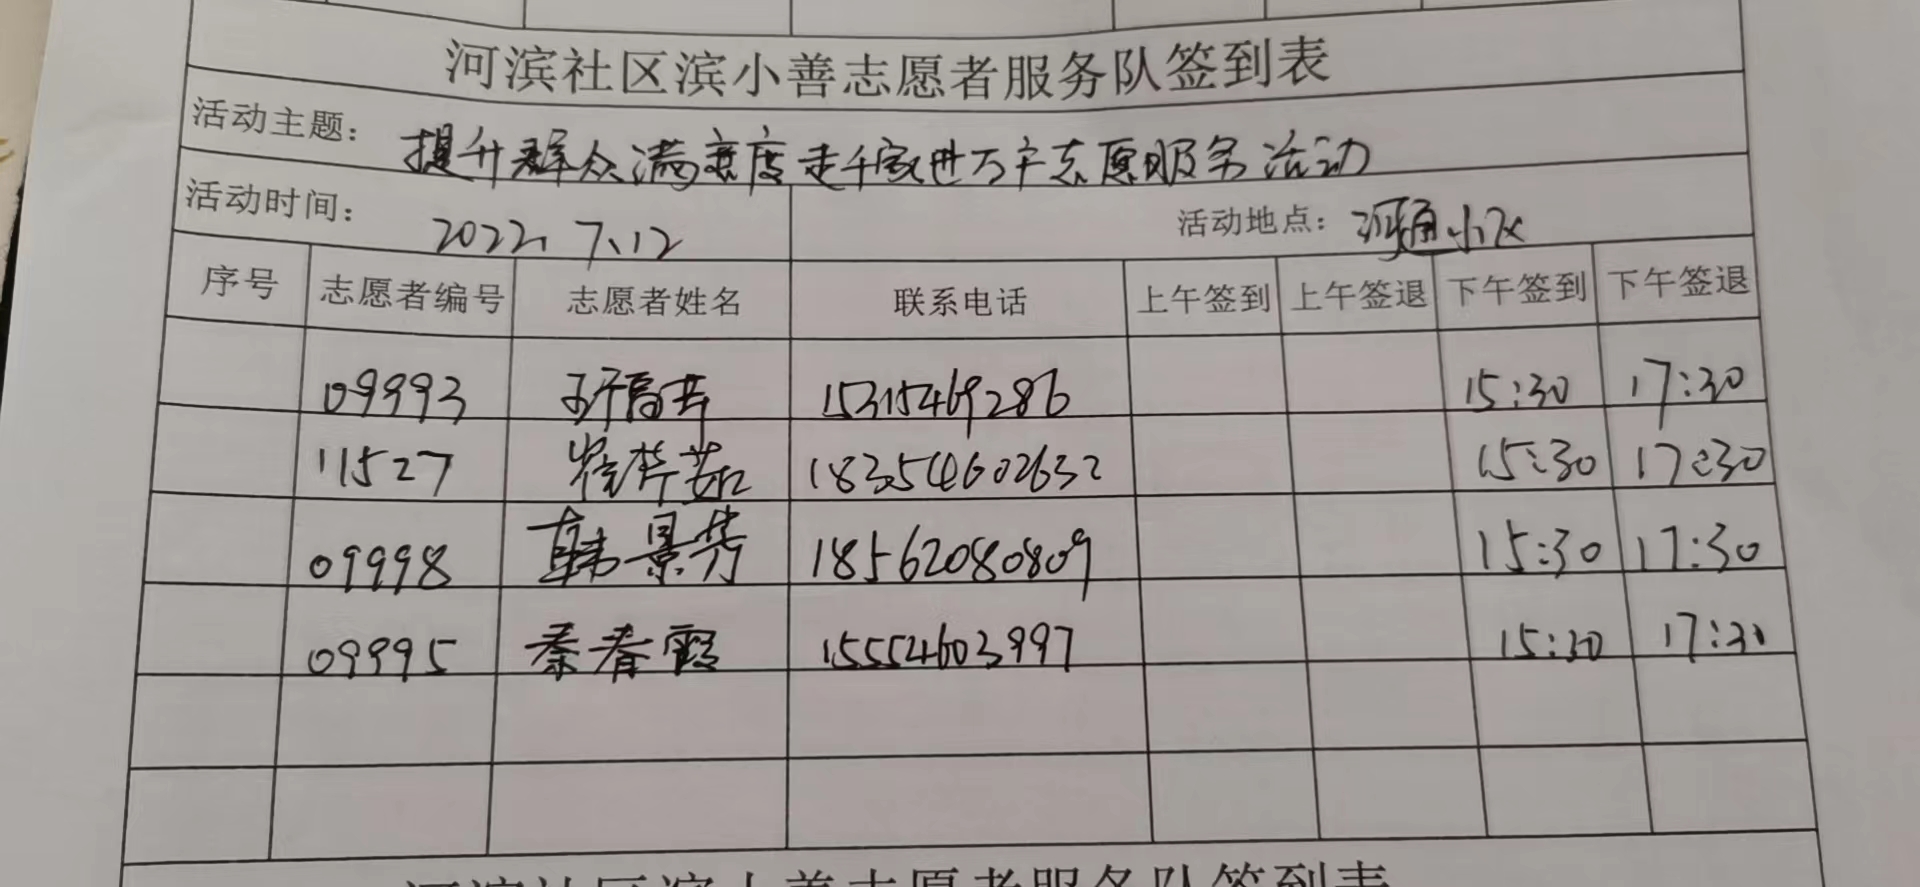 河滨社区滨小善志愿者服务队签到表
活动主题： 提升群众满意度走千家进万户志愿服务活动
活动时间： 2022.7.12 活动地点： 河通小区
序号 志愿者编号 志愿者姓名 联系电话 上午签到 上午签退 下午签到 下午签退
09993 15315469286 15:30 17:30
11527 18354602632 15:30 17:30
09998 韩景芳 18562080809 15:30 17:30
09995 秦春霞 15554603997 15:30 17:30
河滨社区滨小善志愿者服务队签到表